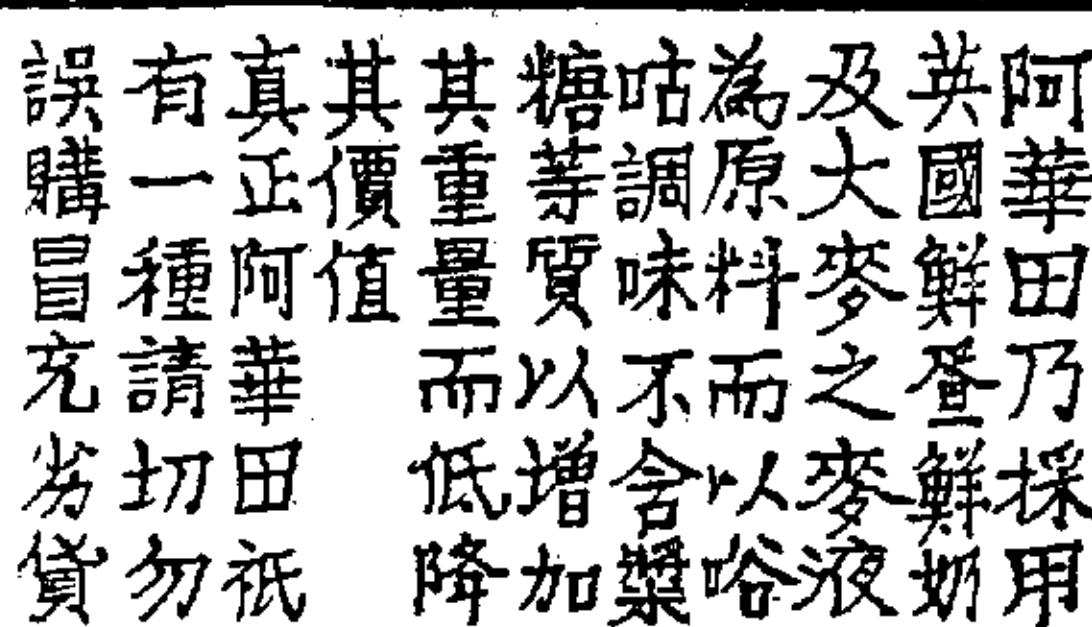 阿華田乃採用
英國鮮疍鮮奶
及大麥之麥液
為原料而以唂
咕調味不含槳
糖等質以增加
其重量而低降
其價值
真正阿華田祇
有一種請切勿
誤購冒充劣貨